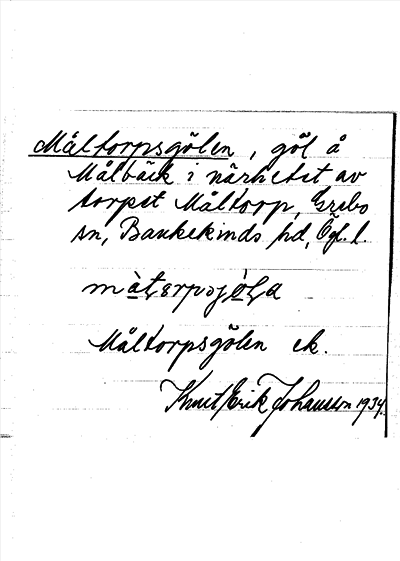 Måltorpsgölen, göl å
Målbäck i närhetet av
torpet Måltorp, Grebo
sn, Bankekinds hd, Ögl. l.
Måltorpsgölen ek.
Knut Erik Johansson 1934.